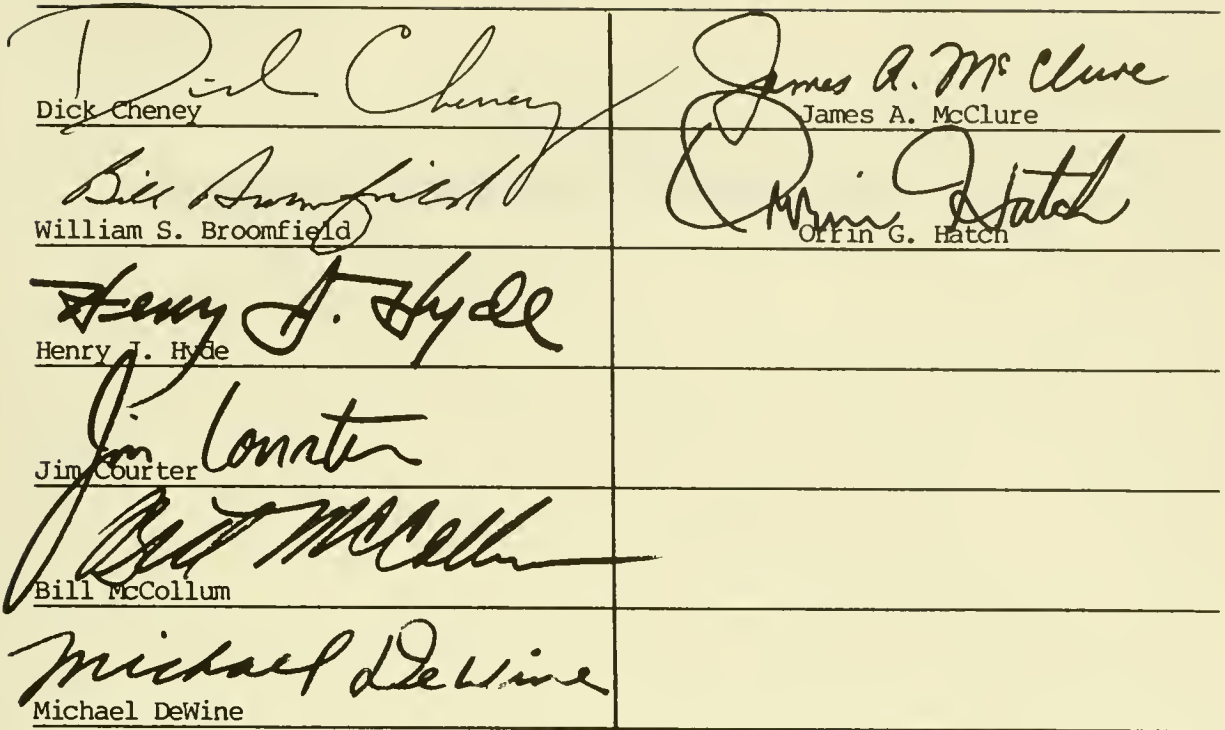 Dick Cheney
Dick Cheney
Bill Broomfield
William S. Broomfield
Henry J. Hyde
Henry J. Hyde
Jim Courter
Jim Courter
Bill McCollum
Bill McCollum
Michael DeWine
Michael DeWine
James A. McClure
James A. McClure
Orrin Hatch
Orrin G. Hatch